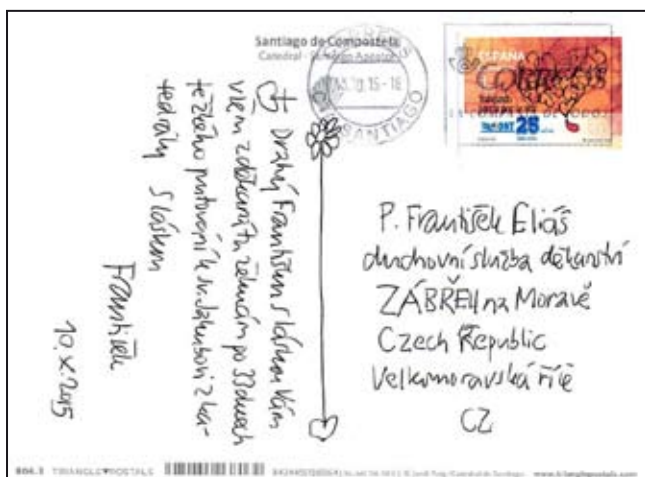 Santiago de Compostela
SANTIAGO
ESPAÑA
CORREOS
25
Drahý Františku s láskou Vám
všem z děkanátu žehnám po 33 dnech
těžkého putování k sv. Jakubovi z ka-
tedrály S láskou
František
10.X.2015
P. František Eliáš
duchovní služba děkanství
ZÁBŘEH na Moravě
Czech Republic
Velkomoravská říše
CZ
TRIANGLE♥POSTALS
www.trianglepostals.com